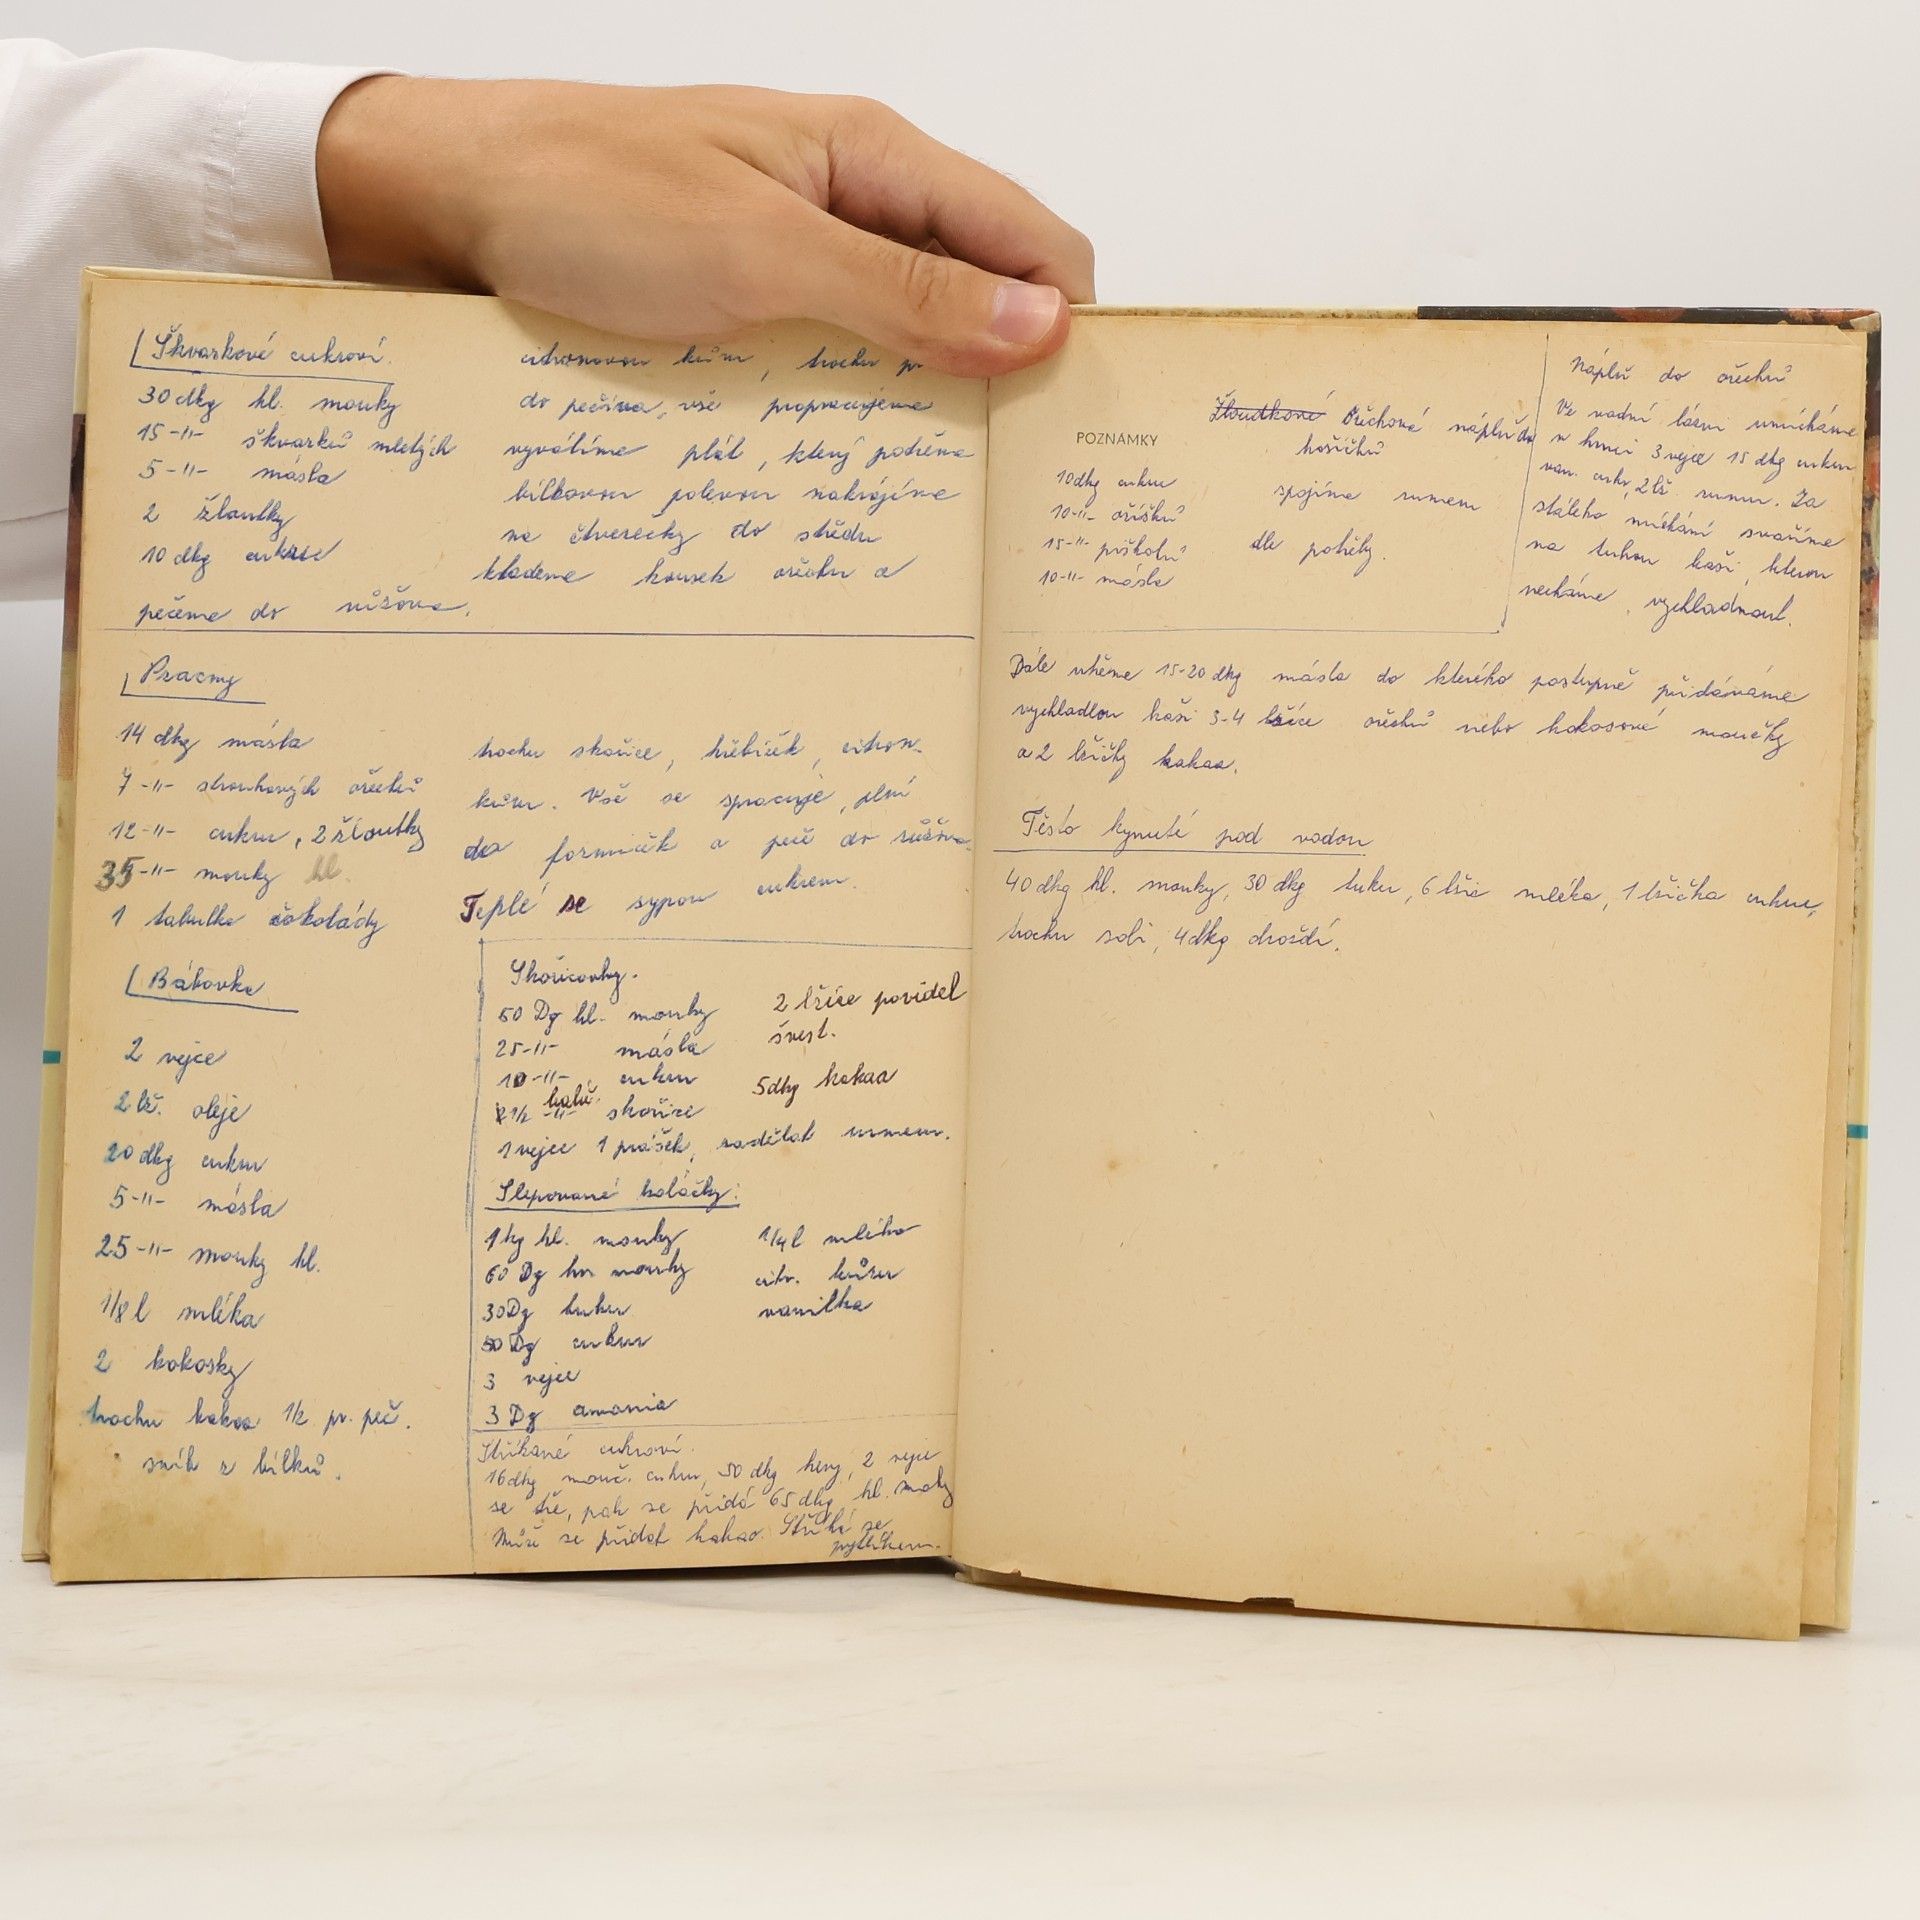 Škvarkové cukroví.
30 dkg hl. mouky
15 -"- škvarků mletých
5 -"- másla
2 žloutky
10 dkg cukru
citronovou kůru, trochu pr
do pečiva, vše propracujeme
vyválíme plát, který potřeme
bílkovou polevou nakrájíme
na čtverečky do středu
klademe kousek ořechu a
pečeme do růžova.
Pracny
14 dkg másla
7 -"- strouhaných ořechů
12 -"- cukru, 2 žloutky
35 -"- mouky hl.
1 tabulka čokolády
trochu skořice, hřebíček, citron.
kůru. Vše se spracuje, plní
do formiček a peče do růžova.
Teplé se sypou cukrem.
Bábovka
2 vejce
2 lž. oleje
20 dkg cukru
5 -"- másla
25 -"- mouky hl.
1/8 l mléka
2 kokosky
trochu kakaa 1/2 pr. peč.
sníh z bílků.
Skořicovky.
50 Dg hl. mouky
25 -"- másla
10 -"- cukru
1/2 -"- skořice
1 vejce 1 prášek, zadělat rumem.
2 lžíce povidel
švest.
5 dkg kakaa
Slepované koláčky:
1 kg hl. mouky
60 Dg hr mouky
30 Dg tuku
50 Dg cukru
3 vejce
3 Dg amonia
1/4 l mléka
citr. kůru
vanilka
Stříkané cukroví.
16 dkg mouč. cukru, 50 dkg hery, 2 vejce
se tře, pak se přidá 65 dkg hl. mouky
Může se přidat kakao. Stříká se
pytlíkem.
POZNÁMKY
Žloutkové Ořechová náplň do
košíčků
10 dkg cukru
10 -"- oříšků
15 -"- piškotů
10 -"- másla
spojíme rumem
dle potřeby.
Náplň do ořechů
Ve vodní lázni umícháme
v hrnci 3 vejce 15 dkg cukru
van. cukr, 2 lž. rumu. Za
stálého míchání svaříme
na tuhou kaši, kterou
necháme vychladnout.
Dále utřeme 15-20 dkg másla do kterého postupně přidáváme
vychladlou kaši 3-4 lžíce ořechů nebo kokosové moučky
a 2 lžičky kakaa.
Těsto kynuté pod vodou
40 dkg hl. mouky, 30 dkg tuku, 6 lžic mléka, 1 lžička cukru,
trochu soli, 4 dkg droždí.